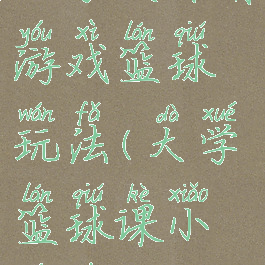 yóu xì lán qiú
游戏篮球
wán fǎ dà xué
玩法(大学
lán qiú kè xiǎo
篮球课小